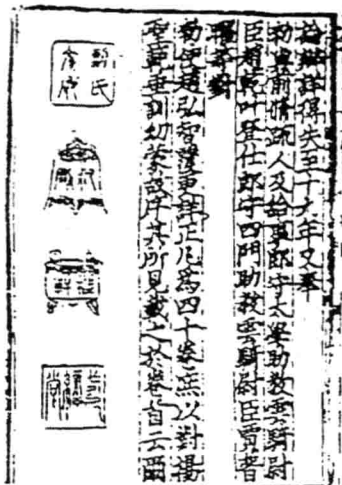 論辯詳得失至十六年又奉
勑與前脩疏人及給事郎守太學助教雲騎尉
臣趙乾叶登仕郎守四門助教雲騎尉臣賈普
曜等對
勑使趙弘智覆更詳正凡為四十卷庶以對揚
聖範垂訓幼蒙故序其所見載之於卷首云爾
劉氏文府
叔剛
桂軒
弌經堂